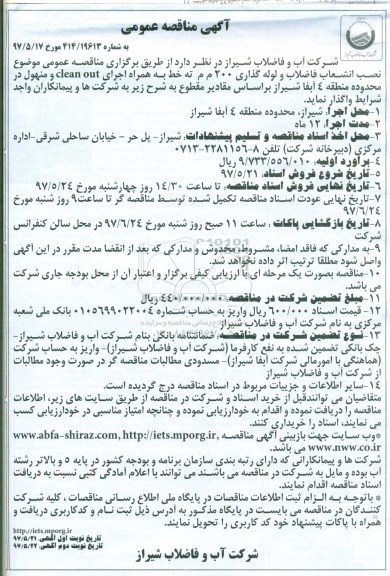 آگهی مناقصه عمومی
به شماره ۴۱۴/۱۹۶۱۳ مورخ ۹۷/۵/۱۷
شرکت آب و فاضلاب شیراز در نظر دارد از طریق برگزاری مناقصه عمومی موضوع
نصب انشعاب فاضلاب و لوله گذاری ۲۰۰ م م ته خط به همراه اجرای clean out و منهول در
محدوده منطقه ۴ آبفا شیراز براساس مقادیر مقطوع به شرح زیر به شرکت ها و پیمانکاران واجد
شرایط واگذار نماید.
۱-محل اجرا: شیراز، محدوده منطقه ۴ آبفا شیراز
۲-مدت اجرا: ۱۲ ماه
۳-محل اخذ اسناد مناقصه و تسلیم پیشنهادات: شیراز- پل حر - خیابان ساحلی شرقی-اداره
مرکزی (دبیرخانه شرکت) تلفن ۸-۲۲۸۱۱۵۶-۰۷۱۳
۴-برآورد اولیه: ۹/۷۳۳/۵۵۶/۰۱۰ ریال
۵-تاریخ شروع فروش اسناد: ۹۷/۵/۲۱
۶-تاریخ نهایی فروش اسناد مناقصه: تا ساعت ۱۴/۳۰ روز چهارشنبه مورخ ۹۷/۵/۲۴
۷-تاریخ نهایی عودت اسناد مناقصه تکمیل شده توسط مناقصه گر تا ساعت ۹ روز شنبه مورخ
۹۷/۶/۲۴
۸-تاریخ بازگشایی پاکات: ساعت ۱۱ صبح روز شنبه مورخ ۹۷/۶/۲۴ در محل سالن کنفرانس
شرکت
۹-به مدارکی که فاقد امضا، مشروط، مخدوش و مدارکی که بعد از انقضا مدت مقرر در این آگهی
واصل شود مطلقا ترتیب اثر داده نخواهد شد.
۱۰-مناقصه بصورت یک مرحله ای با ارزیابی کیفی برگزار و اعتبار آن از محل بودجه جاری شرکت
می باشد.
۱۱-مبلغ تضمین شرکت در مناقصه: ۴۴۰/۰۰۰/۰۰۰ ریال
۱۲- قیمت اسناد ۶۰۰/۰۰۰ ریال واریز به حساب شماره ۰۱۰۵۶۹۹۰۲۲۰۰۴ بانک ملی شعبه
مرکزی به نام شرکت آب و فاضلاب شیراز
۱۳-نوع تضمین شرکت در مناقصه: ضمانتنامه بانکی بنام شرکت آب و فاضلاب شیراز-
چک بانکی تضمین شده به نفع کارفرما (شرکت آب و فاضلاب شیراز)- واریز به حساب شرکت
(هماهنگی با امورمالی شرکت آبفا شیراز)- مسدودی مطالبات مناقصه گر در صورت وجود مطالبات
از شرکت آب و فاضلاب شیراز
۱۴-سایر اطلاعات و جزییات مربوط در اسناد مناقصه درج گردیده است.
متقاضیان می توانندقبل از خرید اسناد و شرکت در مناقصه از طریق سایت های زیر، اطلاعات
مناقصه را دریافت نموده و اقدام به خودارزیابی نموده و چنانچه امتیاز مناسبی در خودارزیابی کسب
می نمایند، اسناد را خریداری کنند.
*وب سایت جهت بازبینی آگهی مناقصه www.abfa-shiraz.com, http://iets.mporg.ir,
www.nww.co.ir می باشد.
شرکت ها و پیمانکارانی که دارای رتبه بندی سازمان برنامه و بودجه کشور در پایه ۵ و بالاتر رشته
آب بوده و مایل به شرکت در مناقصه می باشند می توانند با اعلام آمادگی کتبی نسبت به دریافت
اسناد مناقصه اقدام نمایند.
*باتوجه به الزام ثبت اطلاعات مناقصات در پایگاه ملی اطلاع رسانی مناقصات، کلیه شرکت
کنندگان در مناقصه می بایست در پایگاه مذکور به آدرس ذیل ثبت نام و کدکاربری دریافت و
همراه با پاکات پیشنهاد خود کد کاربری را تحویل نمایند.
http://iets.mporg.ir
تاریخ نوبت اول آگهی ۹۷/۵/۲۱
تاریخ نوبت دوم آگهی ۹۷/۵/۲۲
شرکت آب و فاضلاب شیراز